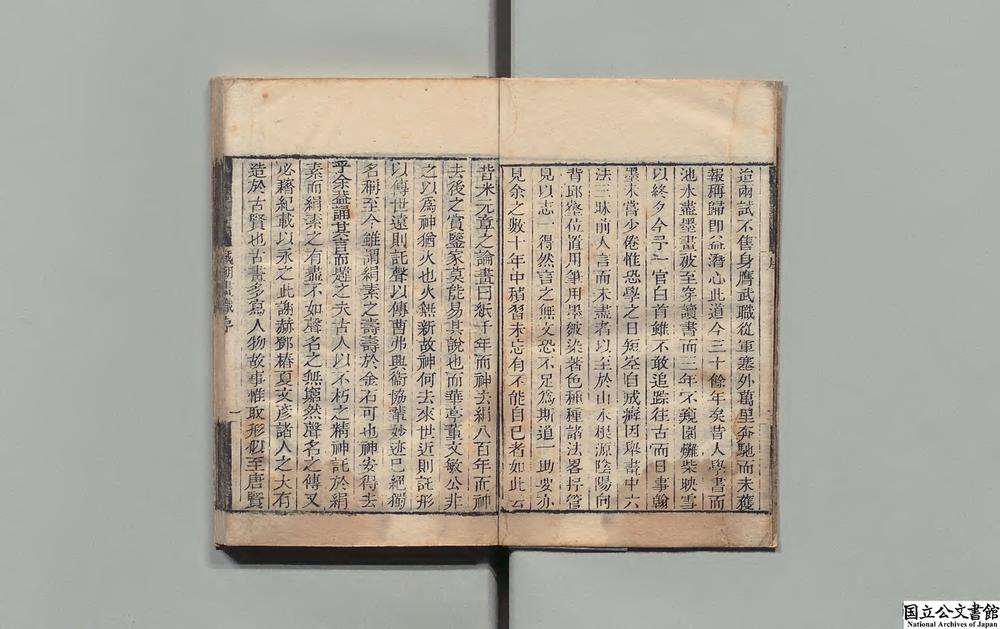 迨兩試不售身膺武職從軍塞外萬里奔馳而未獲
報稱歸即益潛心此道今三十餘年矣昔人學書而
池水盡墨畫被至穿讀書而三年不窺園爇柴映雪
以終夕今予一官白首雖不敢追踪往古而日事翰
墨未嘗少倦惟恐學之日短空自成癖因舉畫中六
法三昧前人言而未盡者以至於山水根源陰陽向
背邱壑位置用筆用墨皴染著色種種諸法畧抒管
見以志一得然言之無文恐不足爲斯道一助要亦
見余之數十年中積習未忘有不能自已者如此云
序
昔米元章之論畫曰紙千年而神去絹八百年而神
去後之賞鑒家莫能易其說也而華亭董文敏公非
之以爲神猶火也火無新故神何去來世近則託形
以傳世遠則託聲以傳曹弗興衛協輩妙迹已絕獨
名稱至今雖謂絹素之壽壽於金石可也神安得去
乎余葢誦其言而韙之夫古人以不朽之精神託於絹
素而絹素之有盡不如聲名之無窮然聲名之傳又
必藉紀載以永之此謝赫鄧椿夏文彥諸人之大有
造於古賢也古畫多寫人物故事惟取形似至唐賢
序
一
国立公文書館
National Archives of Japan